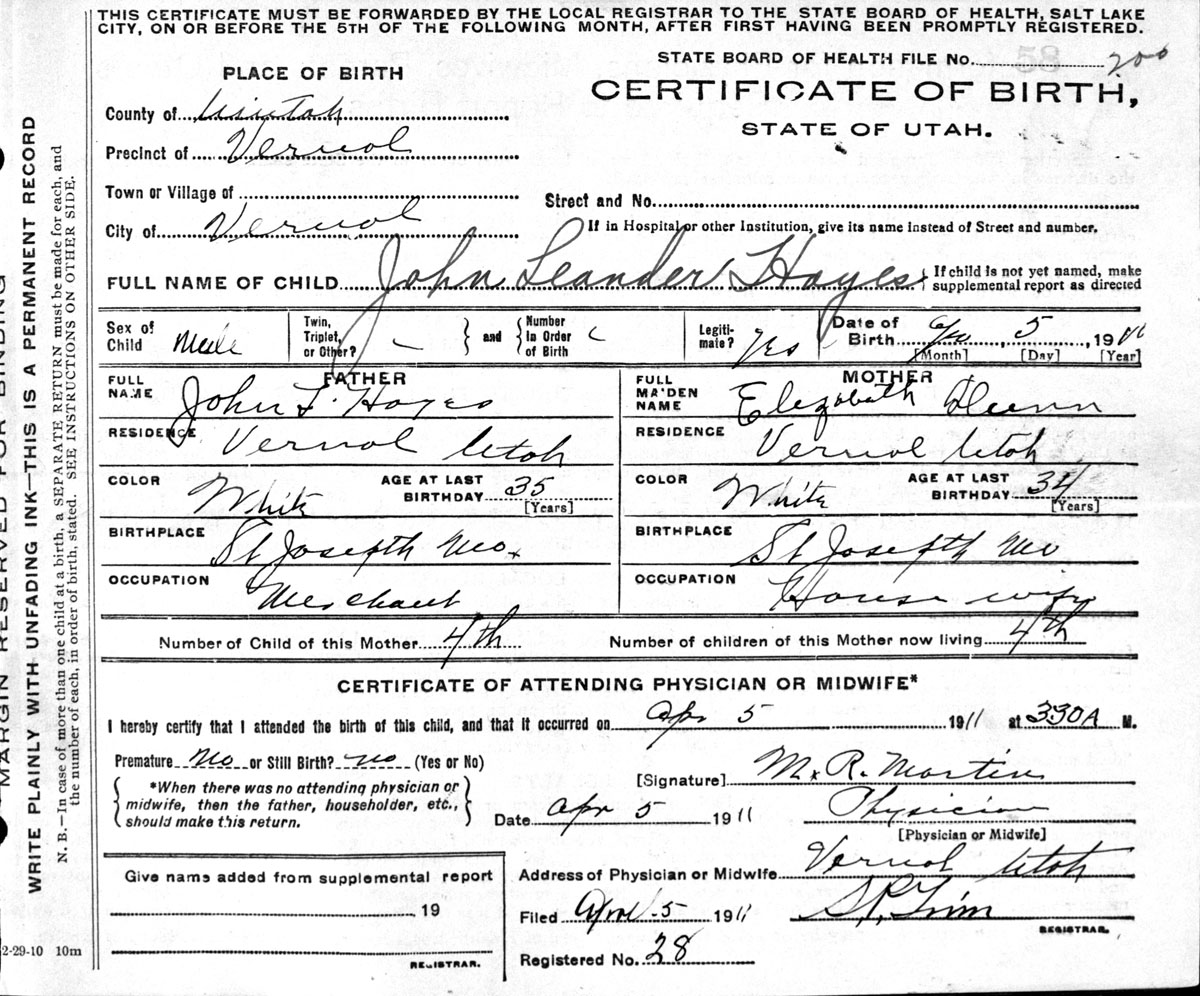 THIS CERTIFICATE MUST BE FORWARDED BY THE LOCAL REGISTRAR TO THE STATE BOARD OF HEALTH, SALT LAKE
CITY, ON OR BEFORE THE 5TH OF THE FOLLOWING MONTH, AFTER FIRST HAVING BEEN PROMPTLY REGISTERED.
STATE BOARD OF HEALTH FILE No. 58 200
PLACE OF BIRTH
CERTIFICATE OF BIRTH,
STATE OF UTAH.
County of Uintah
Precinct of Vernal
Town or Village of
Street and No.
City of Vernal
If in Hospital or other Institution, give its name instead of Street and number.
FULL NAME OF CHILD John Leander Hayes
If child is not yet named, make
supplemental report as directed
Sex of Child Male
Twin, Triplet, or Other? –
and
Number In Order of Birth
Legitimate? Yes
Date of Birth Apr, 5, 1911
[Month] [Day] [Year]
FATHER
FULL NAME John L. Hayes
RESIDENCE Vernal Utah
COLOR White
AGE AT LAST BIRTHDAY 35
[Years]
BIRTHPLACE St Joseph Mo
OCCUPATION Merchant
MOTHER
FULL MAIDEN NAME Elezabeth Glenn
RESIDENCE Vernal Utah
COLOR White
AGE AT LAST BIRTHDAY 34
[Years]
BIRTHPLACE St Joseph Mo
OCCUPATION House wife
Number of Child of this Mother 4th
Number of children of this Mother now living 4th
CERTIFICATE OF ATTENDING PHYSICIAN OR MIDWIFE*
I hereby certify that I attended the birth of this child, and that it occurred on Apr 5 1911 at 330A M.
Premature No or Still Birth? No (Yes or No)
*When there was no attending physician or
midwife, then the father, householder, etc.,
should make this return.
[Signature] M. R. Martin
Date Apr 5 1911
Physician
[Physician or Midwife]
Address of Physician or Midwife Vernal Utah
Give name added from supplemental report
19
REGISTRAR.
Filed April 5 1911
REGISTRAR.
Registered No. 28
2-29-10 10m
MARGIN RESERVED FOR BINDING
WRITE PLAINLY WITH UNFADING INK—THIS IS A PERMANENT RECORD
N. B.—In case of more than one child at a birth, a SEPARATE RETURN must be made for each, and
the number of each, in order of birth, stated. SEE INSTRUCTIONS ON OTHER SIDE.